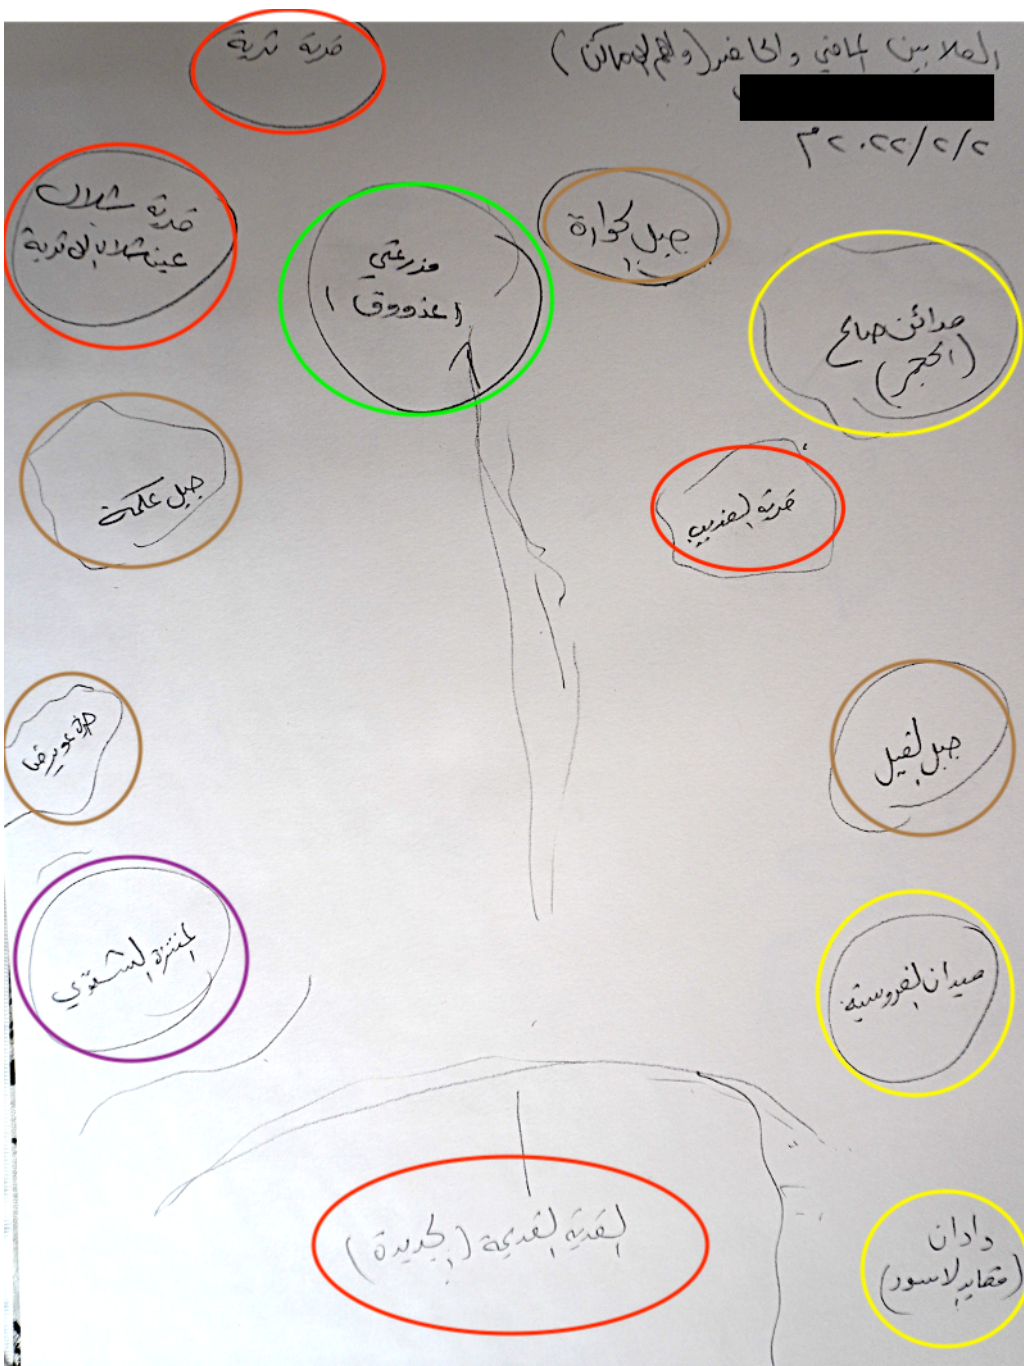 العلا بين الماضي والحاضر (ولهم الاماكن)
٢/٢/٢٠٢٢م
قرية ثربة
قرية شلال
عينا شلال إلى ثربة
مزرعتي
(عذووق)
جبل كوارة
مدائن صالح
(الحجر)
جبل عكمة
قرية العذيب
حرة عويرضا
جبل الفيل
المنتزة الشتوي
ميدان الفروسية
القرية القديمة (الجديدة)
دادان
(مقابر الاسود)